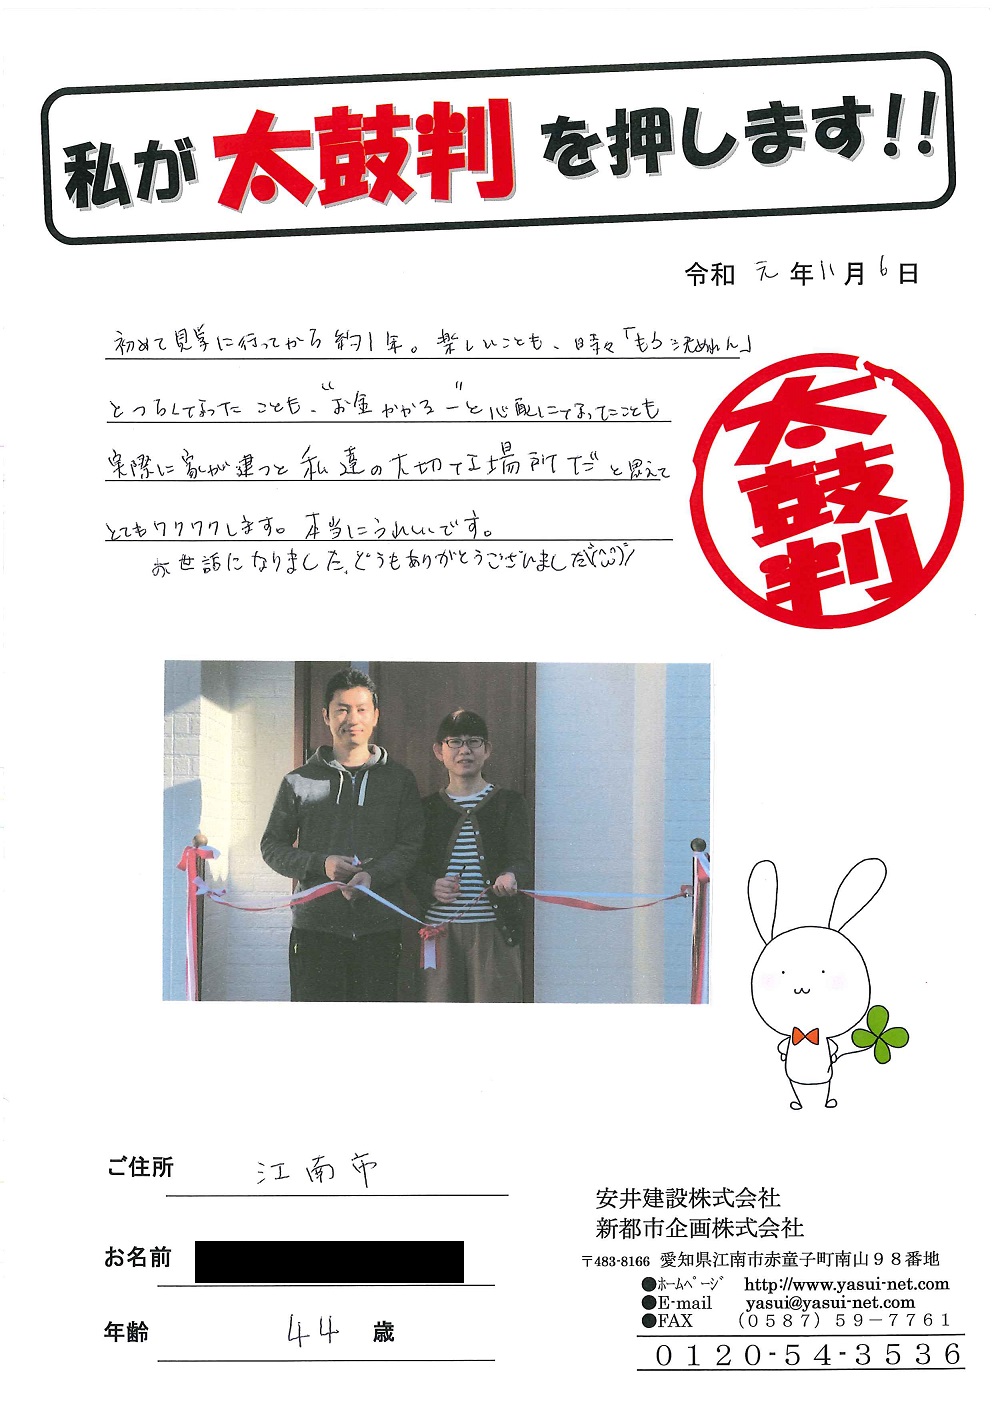 私が太鼓判を押します!!
令和 元 年 11 月 6 日
初めて見学に行ってから約1年。楽しいことも、時々「もう決めれん」
とつらくなったことも、“お金かかるー”と心配になったことも
実際に家が建つと私達の大切な場所だと思えて
とてもワクワクします。本当にうれしいです。
お世話になりました、どうもありがとうございました(^^)/
太鼓判
ご住所 江南市
お名前
年齢 44 歳
安井建設株式会社
新都市企画株式会社
〒483-8166 愛知県江南市赤童子町南山98番地
●ホームページ http://www.yasui-net.com
●E-mail yasui@yasui-net.com
●FAX (0587)59-7761
0120-54-3536